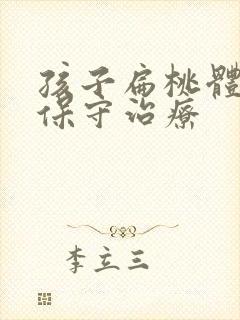 孩子扁桃體
保守治療
李立三